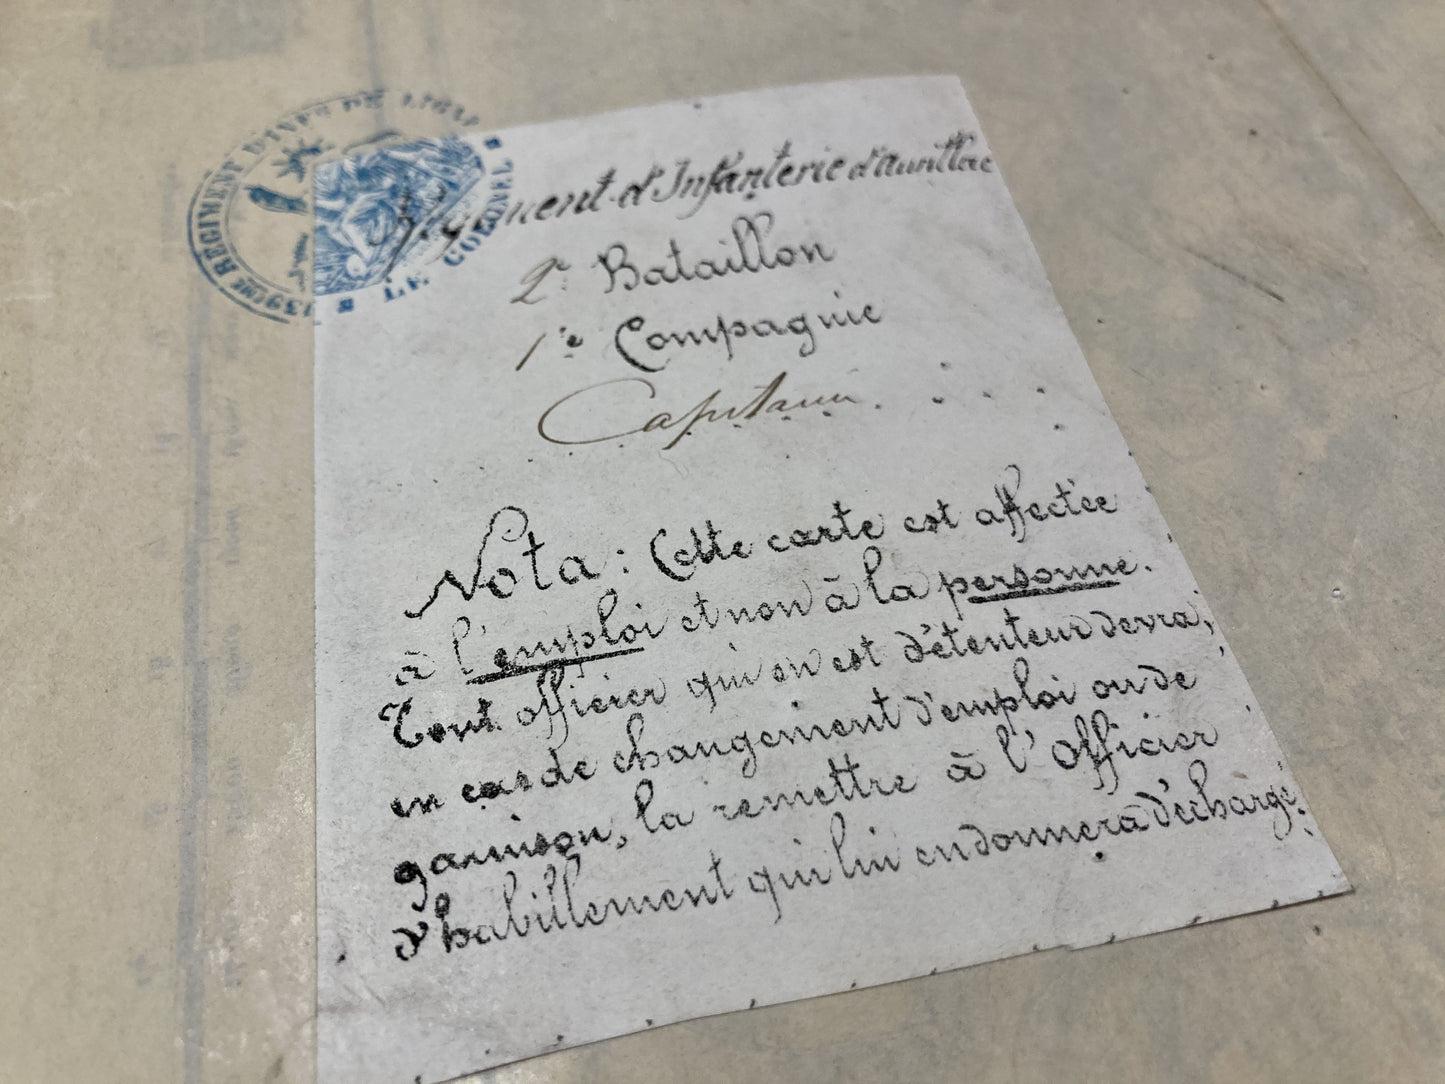 139ème RÉGIMENT D'INFIE DE LIGNE
LE COLONEL
Régiment d'Infanterie d'Aurillac
2e Bataillon
1re Compagnie
Capitaine
Nota : Cette carte est affectée
à l'emploi et non à la personne.
Tout officier qui en est détenteur devra,
en cas de changement d'emploi ou de
garnison, la remettre à l'Officier
d'habillement qui lui en donnera décharge.